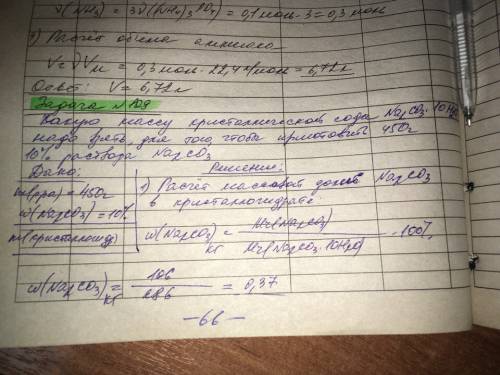 ν(NH3) = 3ν(NH4)3PO4) = 0,1 моль · 3 = 0,3 моль
2) Расчёт объёма аммиака
V = ν Vм = 0,3 моль · 22,4 л/моль = 6,72 л
Ответ: V = 6,72 л
Задача №109
Какую массу кристаллической соды Na2CO3·10H2O
надо взять для того, чтобы приготовить 450г
10% раствора Na2CO3
Дано: Решение:
m(р-ра) = 450г
1) Расчёт массовой доли Na2CO3
ω(Na2CO3) = 10%
в кристаллогидрате
m(кристаллогид)
ω(Na2CO3)кг = Mr(Na2CO3) / Mr(Na2CO3·10H2O) · 100%
ω(Na2CO3)кг = 106 / 286 = 0,37
-66-